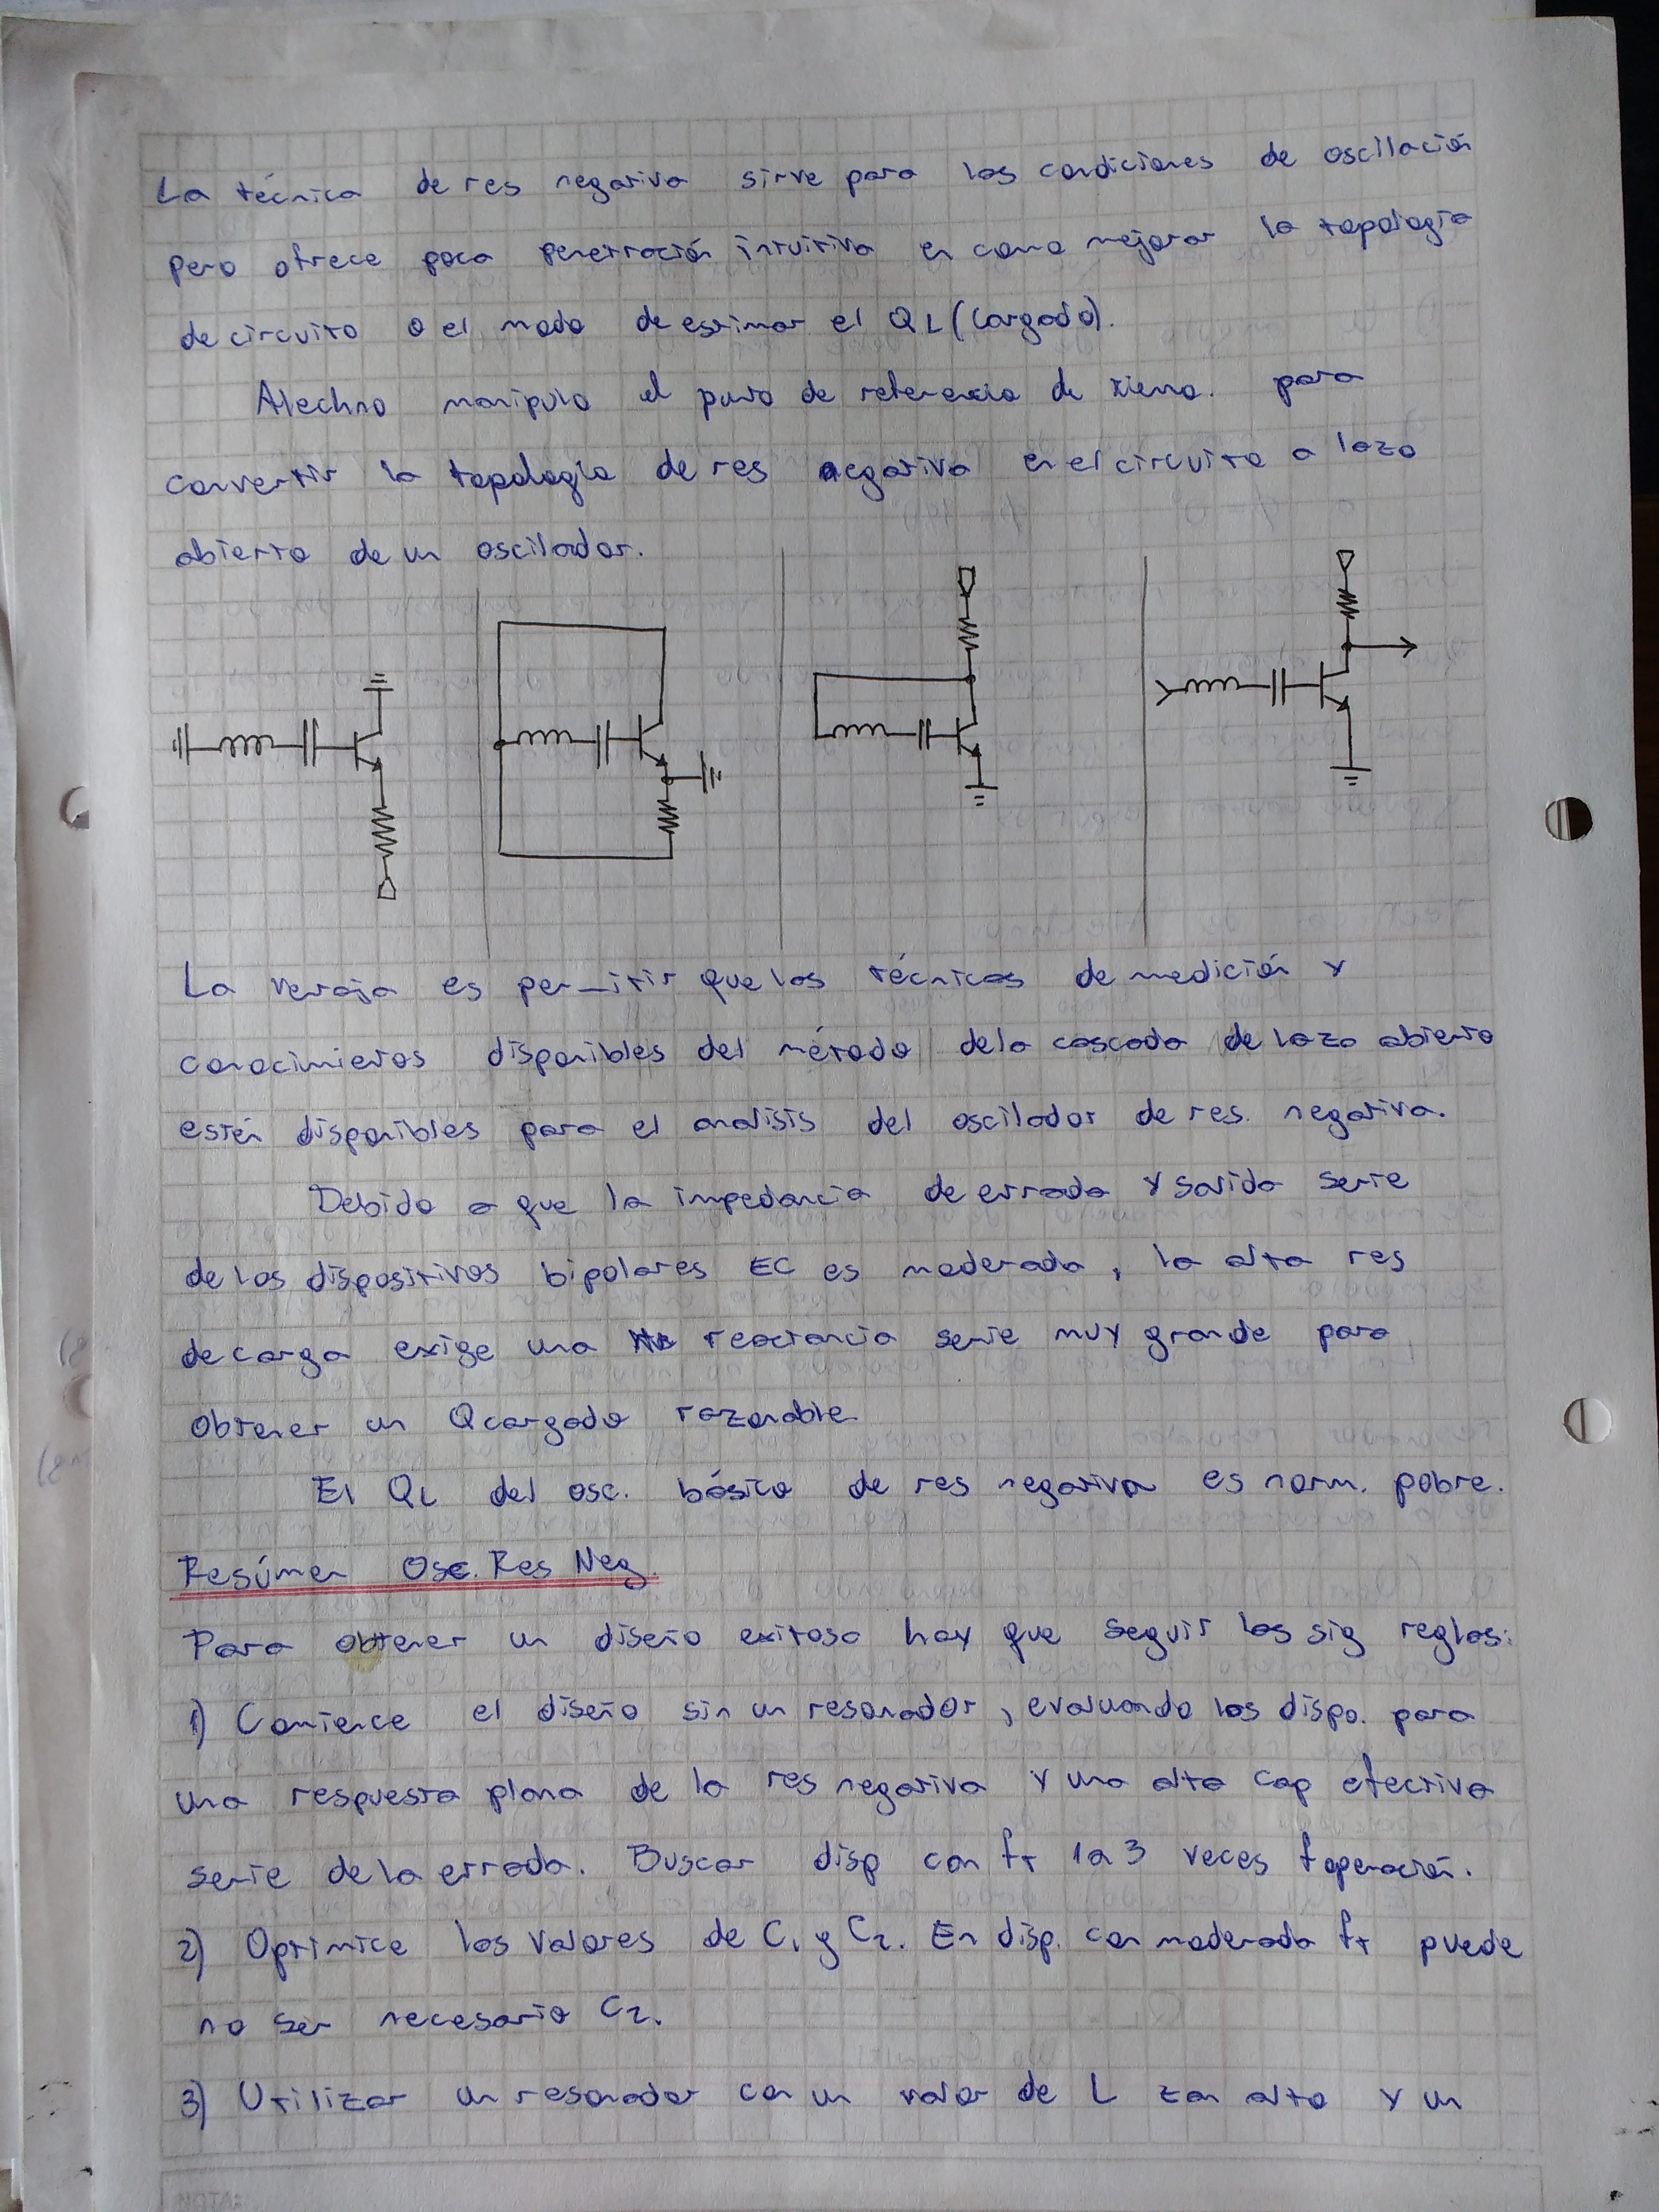 La técnica de res negativa sirve para las condiciones de oscilación
pero ofrece poca penetración intuitiva en como mejorar la topología
de circuito o el modo de estimar el QL (cargado).
Alechno manipula el punto de referencia de tierra. para
convertir la topología de res negativa en el circuito a lazo
abierto de un oscilador.
La ventaja es permitir que las técnicas de medición y
conocimientos disponibles del método de la cascada de lazo abierto
estén disponibles para el analisis del oscilador de res. negativa.
Debido a que la impedancia de entrada y salida serie
de los dispositivos bipolares EC es moderada, la alta res
de carga exige una reactancia serie muy grande para
obtener un Qcargado razonable.
El QL del osc. básico de res negativa es norm. pobre.
Resúmen Osc. Res Neg.
Para obtener un diseño exitoso hay que seguir las sig reglas:
1) Comience el diseño sin un resonador, evaluando los dispo. para
una respuesta plana de la res negativa y una alta cap efectiva
serie de la entrada. Buscar disp con fT 1 a 3 veces foperación.
2) Optimice los valores de C1 y C2. En disp. con moderada fT puede
no ser necesario C2.
3) Utilizar un resonador con un valor de L tan alto y un